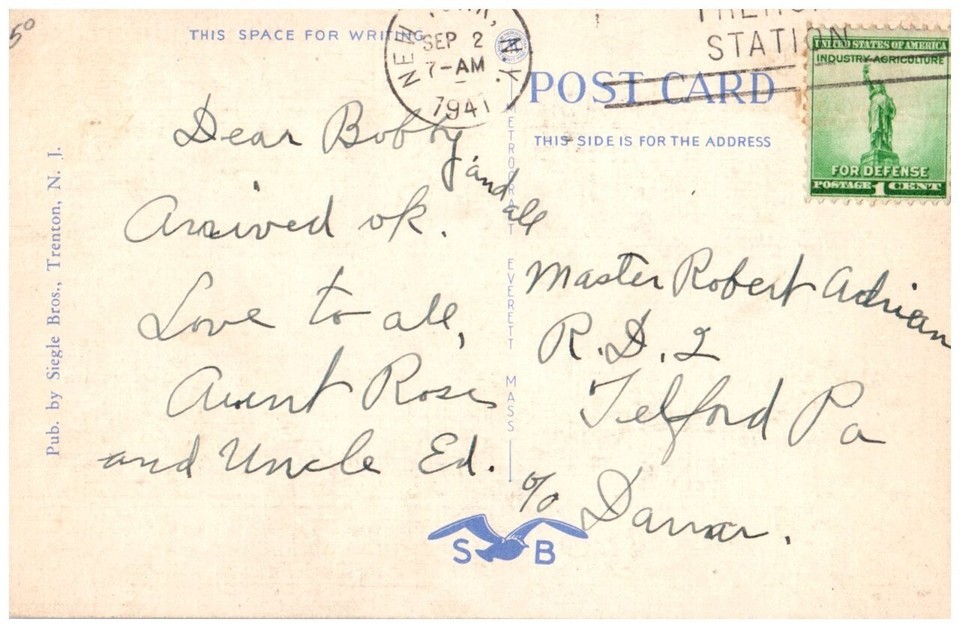 50
THIS SPACE FOR WRITING
NEW YORK, N.Y.
SEP 2
7-AM
1941
STATION
UNITED STATES OF AMERICA
INDUSTRY-AGRICULTURE
FOR DEFENSE
POSTAGE 1 CENT
POST CARD
THIS SIDE IS FOR THE ADDRESS
Dear Bobby
and all
Arrived ok.
Love to all,
Aunt Rose
and Uncle Ed.
Master Robert Adrian
R.D. 2
Telford Pa
c/o
Pub. by Siegle Bros., Trenton, N. J.
EVERETT MASS
S B